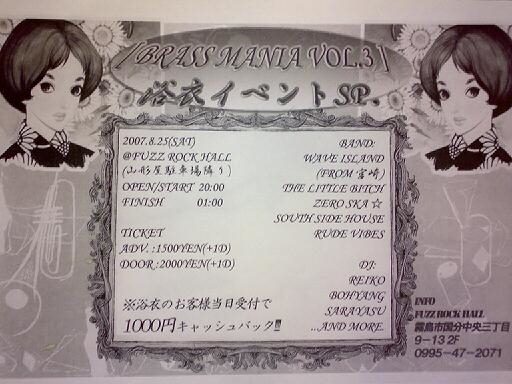 BRASS MANIA VOL.3
浴衣イベントSP.
2007.8.25(SAT)
@FUZZ ROCK HALL
(山形屋駐車場隣り)
OPEN/START 20:00
FINISH 01:00
TICKET
ADV.:1500YEN(+1D)
DOOR:2000YEN(+1D)
※浴衣のお客様当日受付で
1000円キャッシュバック!!!
BAND:
WAVE ISLAND
(FROM 宮崎)
THE LITTLE BITCH
ZERO SKA ☆
SOUTH SIDE HOUSE
RUDE VIBES
DJ:
REIKO
BOHYANG
SARAYASU
...AND MORE.
INFO
FUZZ ROCK HALL
霧島市国分中央三丁目
9-13 2F
0995-47-2071